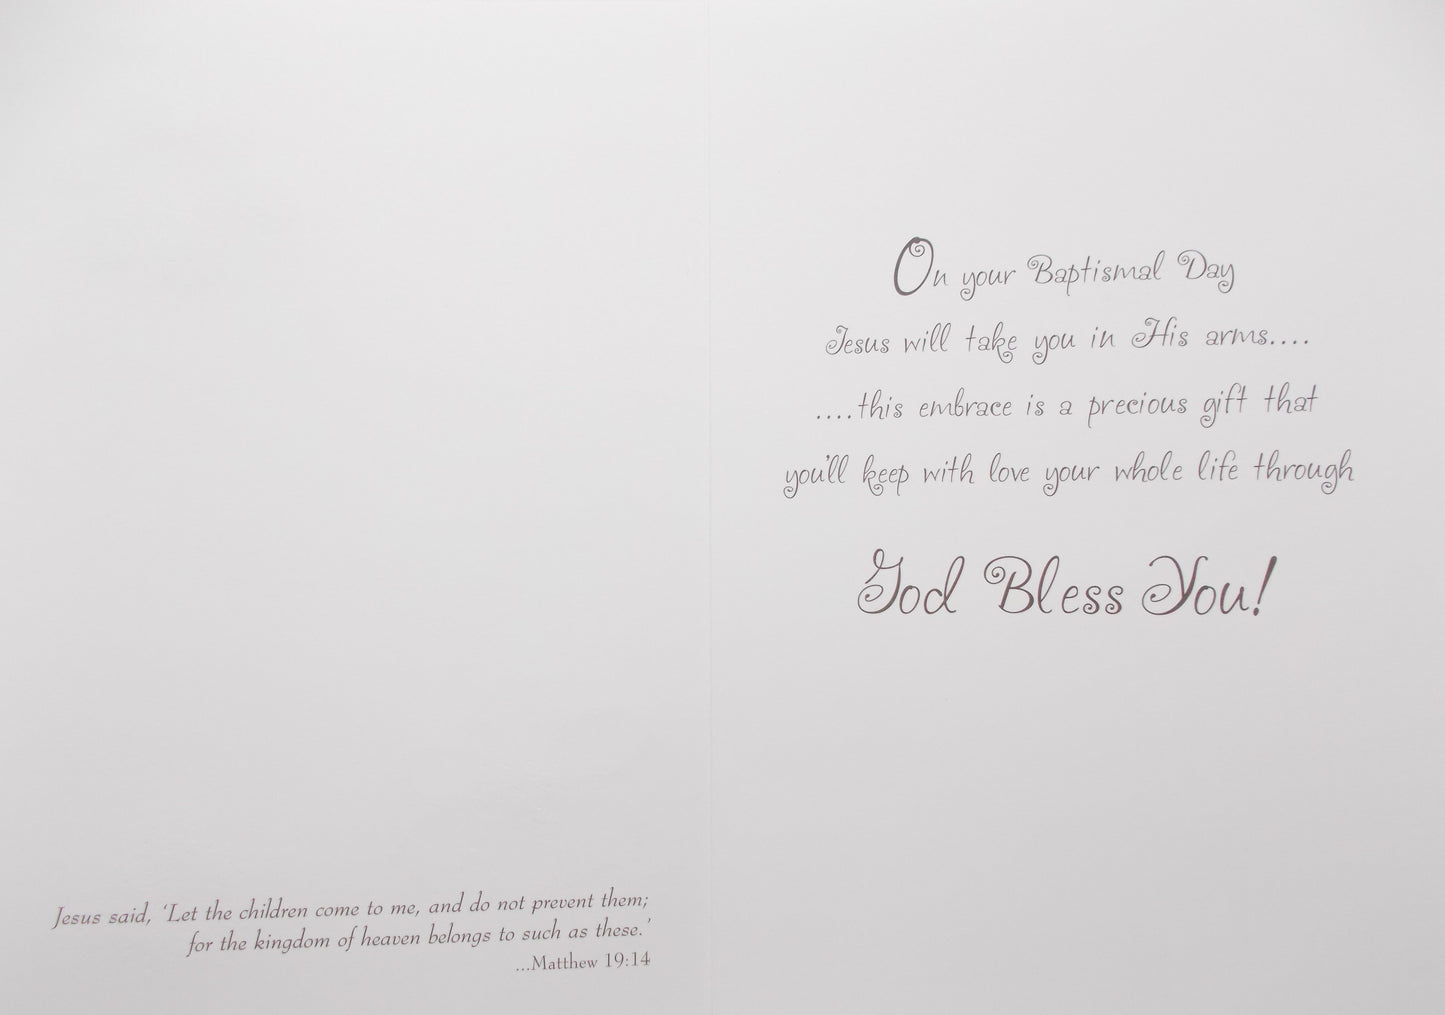 Jesus said, ‘Let the children come to me, and do not prevent them;
for the kingdom of heaven belongs to such as these.’
...Matthew 19:14
On your Baptismal Day
Jesus will take you in His arms....
....this embrace is a precious gift that
you'll keep with love your whole life through
God Bless You!